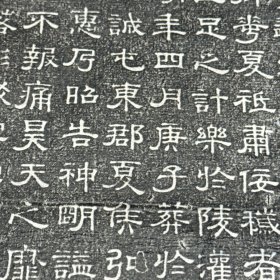 夏祗肅佞穢者
足之計樂於陵灌
年四月庚子葬於
誠屯東郡夏侯弘
惠乃昭告神明謚
不報痛昊天之靡